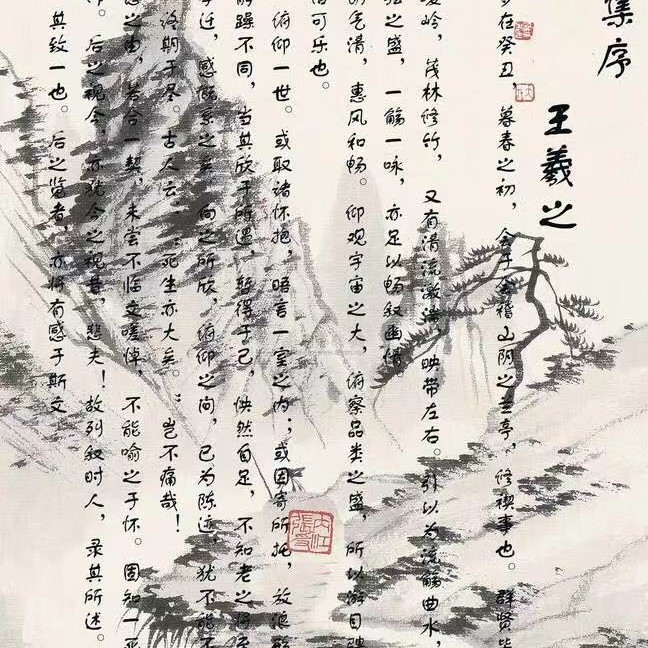 集序
王羲之
岁在癸丑，暮春之初，会于会稽山阴之兰亭，修禊事也。群贤毕
峻岭，茂林修竹，又有清流激湍，映带左右。引以为流觞曲水，
弦之盛，一觞一咏，亦足以畅叙幽情。
朗气清，惠风和畅。仰观宇宙之大，俯察品类之盛，所以游目骋
信可乐也。
俯仰一世。或取诸怀抱，晤言一室之内；或因寄所托，放浪形
静躁不同，当其欣于所遇，暂得于己，快然自足，不知老之将至
事迁，感慨系之矣。向之所欣，俯仰之间，已为陈迹，犹不能不
终期于尽。古人云：“死生亦大矣。”岂不痛哉！
感之由，若合一契，未尝不临文嗟悼，不能喻之于怀。固知一死
作。后之视今，亦犹今之视昔，悲夫！故列叙时人，录其所述。
其致一也。后之览者，亦将有感于斯文